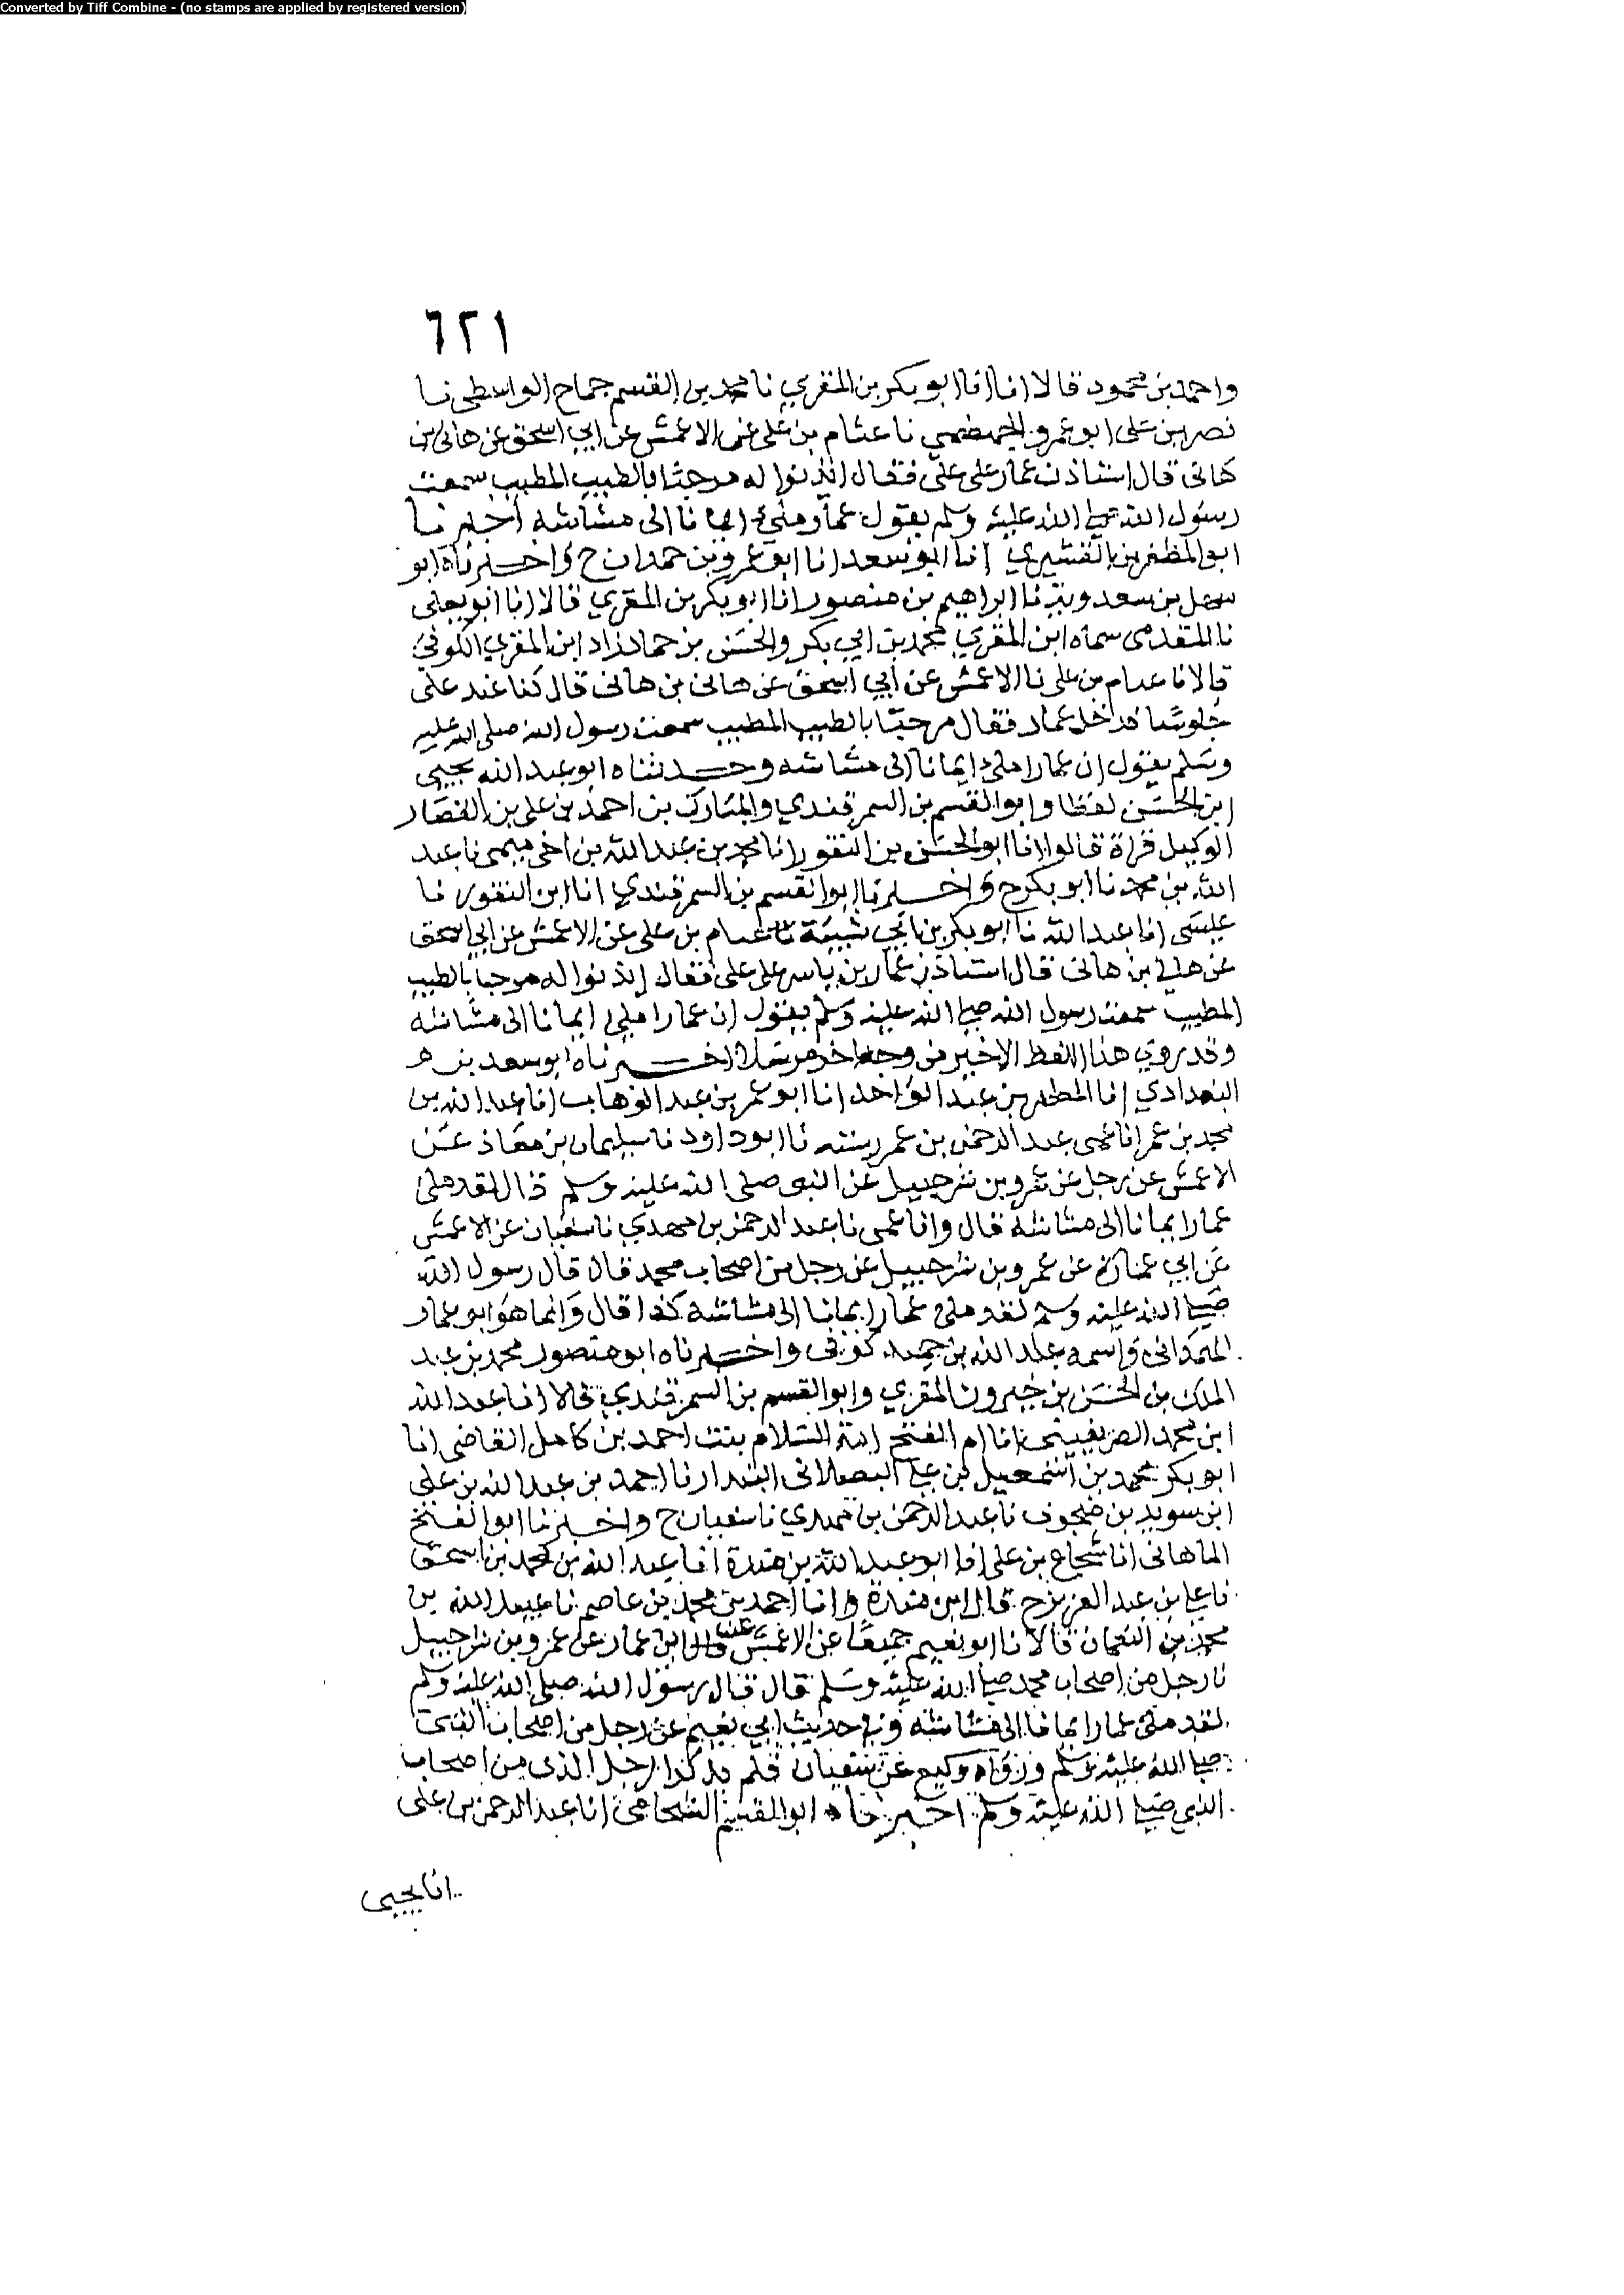 Converted by Tiff Combine - (no stamps are applied by registered version)
٦٢١
واحمد بن محمود قالا انا ابو بكر بن المقري نا محمد بن القسم جماح الواسطي نا
نصر بن علي ابو عمرو الجهضمي نا عثام بن علي عن الاعمش عن ابي اسحق عن هانى بن
هانى قال استاذن عمار على علي فقال ايذنوا له مرحبا بالطيب المطيب سمعت
رسول الله صلى الله عليه وسلم يقول عمار ملئ ايمانا الى مشاشه اخبرنا
ابو المظفر بن القشيري انا ابو سعد انا ابو عمرو بن حمدان ح واخبرناه ابو
سهل بن سعدويه نا ابراهيم بن منصور انا ابو بكر بن المقري قالا انا ابو يعلى
نا المقدمى سماه ابن المقري محمد بن ابي بكر والحسن بن حماد زاد ابن المقري الكوفي
قالا نا عثام بن علي نا الاعمش عن ابي اسحق عن هانى بن هانى قال كنا عند علي
جلوسا فدخل عمار فقال مرحبا بالطيب المطيب سمعت رسول الله صلى الله عليه
وسلم يقول ان عمارا ملئ ايمانا الى مشاشه وحدثناه ابو عبد الله يحيى
ابن الحسن لفظا وابو القسم بن السمرقندي والمبارك بن احمد بن علي بن القصار
الوكيل قراة قالوا انا ابو الحسن بن النقور انا محمد بن عبد الله بن اخي ميمى نا عبد
الله بن محمد نا ابو بكر ح واخبرنا ابو القسم بن السمرقندي انا ابن النقور نا
عيسى انا عبد الله نا ابو بكر بن ابي شيبة نا عثام بن علي عن الاعمش عن ابي اسحق
عن هانى بن هانى قال استاذن عمار بن ياسر على علي فقال ايذنوا له مرحبا بالطيب
المطيب سمعت رسول الله صلى الله عليه وسلم يقول ان عمارا ملئ ايمانا الى مشاشه
وقد روي هذا اللفظ الاخير من وجه اخر مرسلا اخبرناه ابو سعد بن
البغدادي انا المطهر بن عبد الواحد انا ابو عمر بن عبد الوهاب انا عبد الله بن
محمد بن عمر انا عمي عبد الرحمن بن عمر رسته نا ابو داود نا سليمان بن معاذ عن
الاعمش عن رجل عن عمرو بن شرحبيل عن النبي صلى الله عليه وسلم قال لقد ملئ
عمار ايمانا الى مشاشه قال وانا عمي نا عبد الرحمن بن مهدي نا سفيان عن الاعمش
عن ابي عمار عن عمرو بن شرحبيل عن رجل من اصحاب محمد قال قال رسول الله
صلى الله عليه وسلم لقد ملئ عمار ايمانا الى مشاشه كذا قال وانما هو ابو عمار
الهمداني واسمه عبد الله بن حميد كوفي واخبرناه ابو منصور محمد بن عبد
الملك بن الحسن بن خيرون المقري وابو القسم بن السمرقندي قالا انا عبد الله
ابن محمد الصريفيني انا ام الفتح امة السلام بنت احمد بن كامل القاضي انا
ابو بكر محمد بن اسمعيل بن علي البصلاني البندار نا احمد بن عبد الله بن علي
ابن سويد بن منجوف نا عبد الرحمن بن مهدي نا سفيان ح واخبرنا ابو الفتح
الماهاني انا شجاع بن علي انا ابو عبد الله بن مندة انا عبد الله بن محمد بن اسحق
نا علي بن عبد العزيز ح قال ابن مندة وانا احمد بن محمد بن عاصم نا عبيد الله بن
محمد بن النعمان قالا نا ابو نعيم جميعا عن الاعمش عن ابن عمار عن عمرو بن شراحبيل
نا رجل من اصحاب محمد صلى الله عليه وسلم قال قال رسول الله صلى الله عليه وسلم
لقد ملئ عمار ايمانا الى مشاشه وفي حديث ابي نعيم عن رجل من اصحاب النبي
صلى الله عليه وسلم ورواه وكيع عن سفيان فلم يذكر الرجل الذى من اصحاب
النبي صلى الله عليه وسلم اخبرناه ابو القسم الشحامي انا عبد الرحمن بن علي
انا يحيى